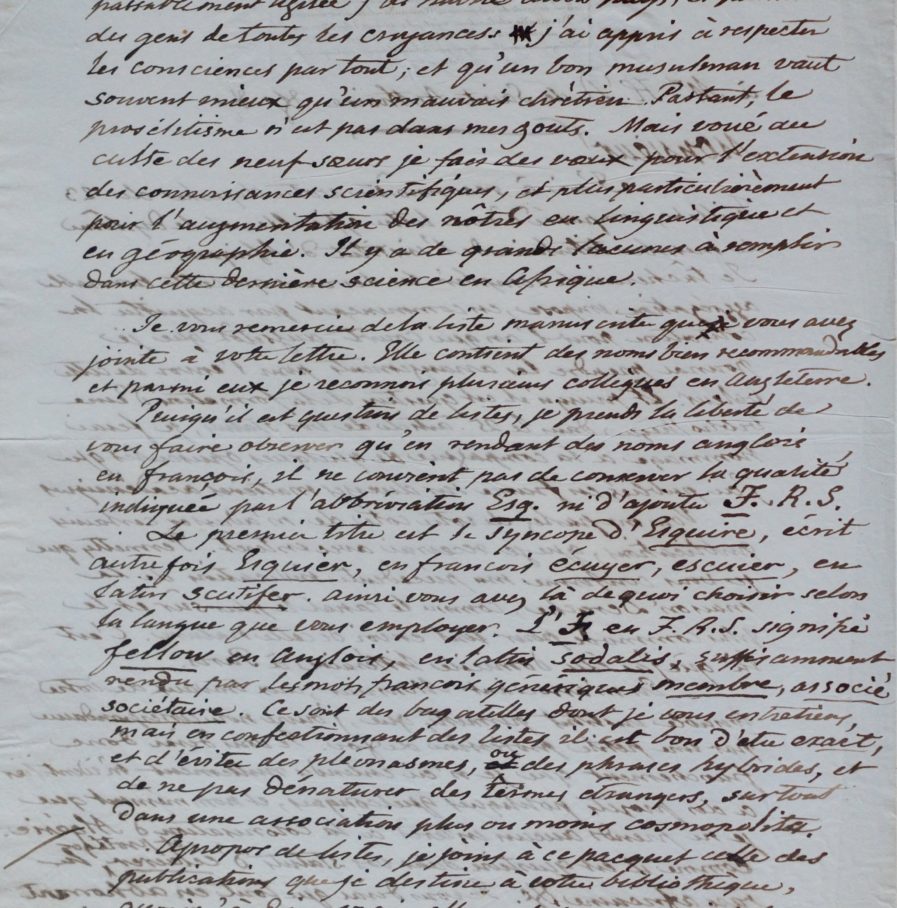 passablement agitée,
des gens de toutes les croyances j'ai appris à respecter
les consciences partout; et qu'un bon musulman vaut
souvent mieux qu'un mauvais chrétien. Partant, le
prosélitisme n'est pas dans mes gouts. Mais voué au
culte des neuf sœurs je fais des vœux pour l'extension
des connoissances scientifiques, et plus particulièrement
pour l'augmentation des nôtres en linguistique et
en géographie. Il y a de grandes lacunes à remplir
dans cette dernière science en Afrique.
Je vous remercie de la liste manuscrite que vous avez
jointe à votre lettre. Elle contient des noms bien recommandables
et parmi eux je reconnois plusieurs collègues en Angleterre.
Puisqu'il est question de listes, je prends la liberté de
vous faire observer qu'en rendant des noms anglois
en françois, il ne convient pas de conserver la qualité
indiquée par l'abbréviation Esq. ni d'ajouter F. R. S.
Le premier titre est la syncope d'Esquire, ecrit
autrefois Esquier, en francois écuyer, escuier, en
latin scutifer. ainsi vous avez là de quoi choisir selon
la langue que vous employez. L'F. en F. R. S. signifie
fellow en anglois, en latin sodalis, suffisamment
rendu par les mots francois génériques membre, associé
sociétaire. Ce sont des bagatelles dont je vous entretiens,
mais en confectionnant des listes il est bon d'etre exact,
et d'éviter des pléonasmes, ou des phrases hybrides, et
de ne pas dénaturer des termes étrangers, surtout
dans une association plus ou moins cosmopolite.
Apropos de listes, je joins à ce pacquet celle des
publications que je destine à votre bibliothèque,